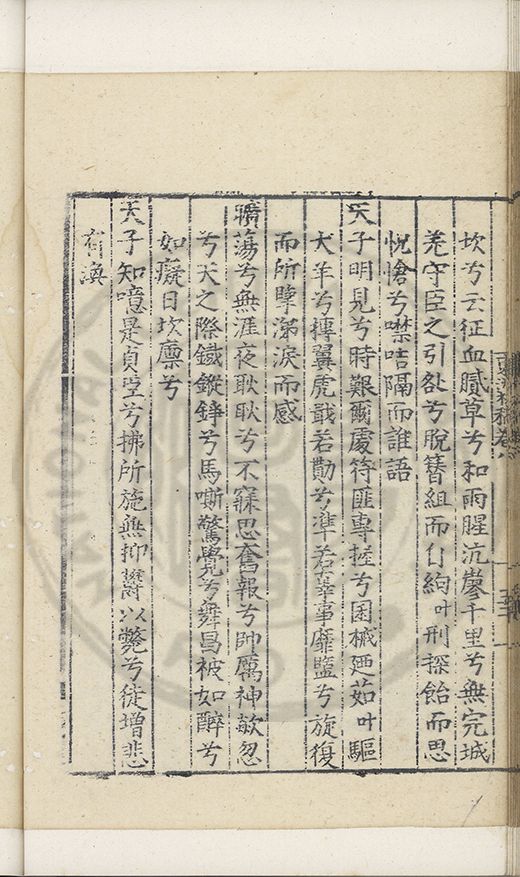 坎兮云征血膩草兮和雨腥沆寥千里兮無完城
羌守臣之引咎兮脫簪組而自絢叶刑探飴而思
怳愴兮噤咭隔而誰語
天子明見兮時艱爾處符匪專握兮困械廼茹叶驅
犬羊兮摶翼虎戢若勩兮準若辜事靡盬兮旋復
而所擊涕淚而感
曠蕩兮無涯夜耿耿兮不寐思奮報兮帥厲神敏忽
兮天之際鐵鏦錚兮馬嘶驚覺兮舞曷被如醉兮
如癡日坎廩兮
天子知噫是貞臣兮拂所施無抑鬱以斃兮徒增悲
有渙